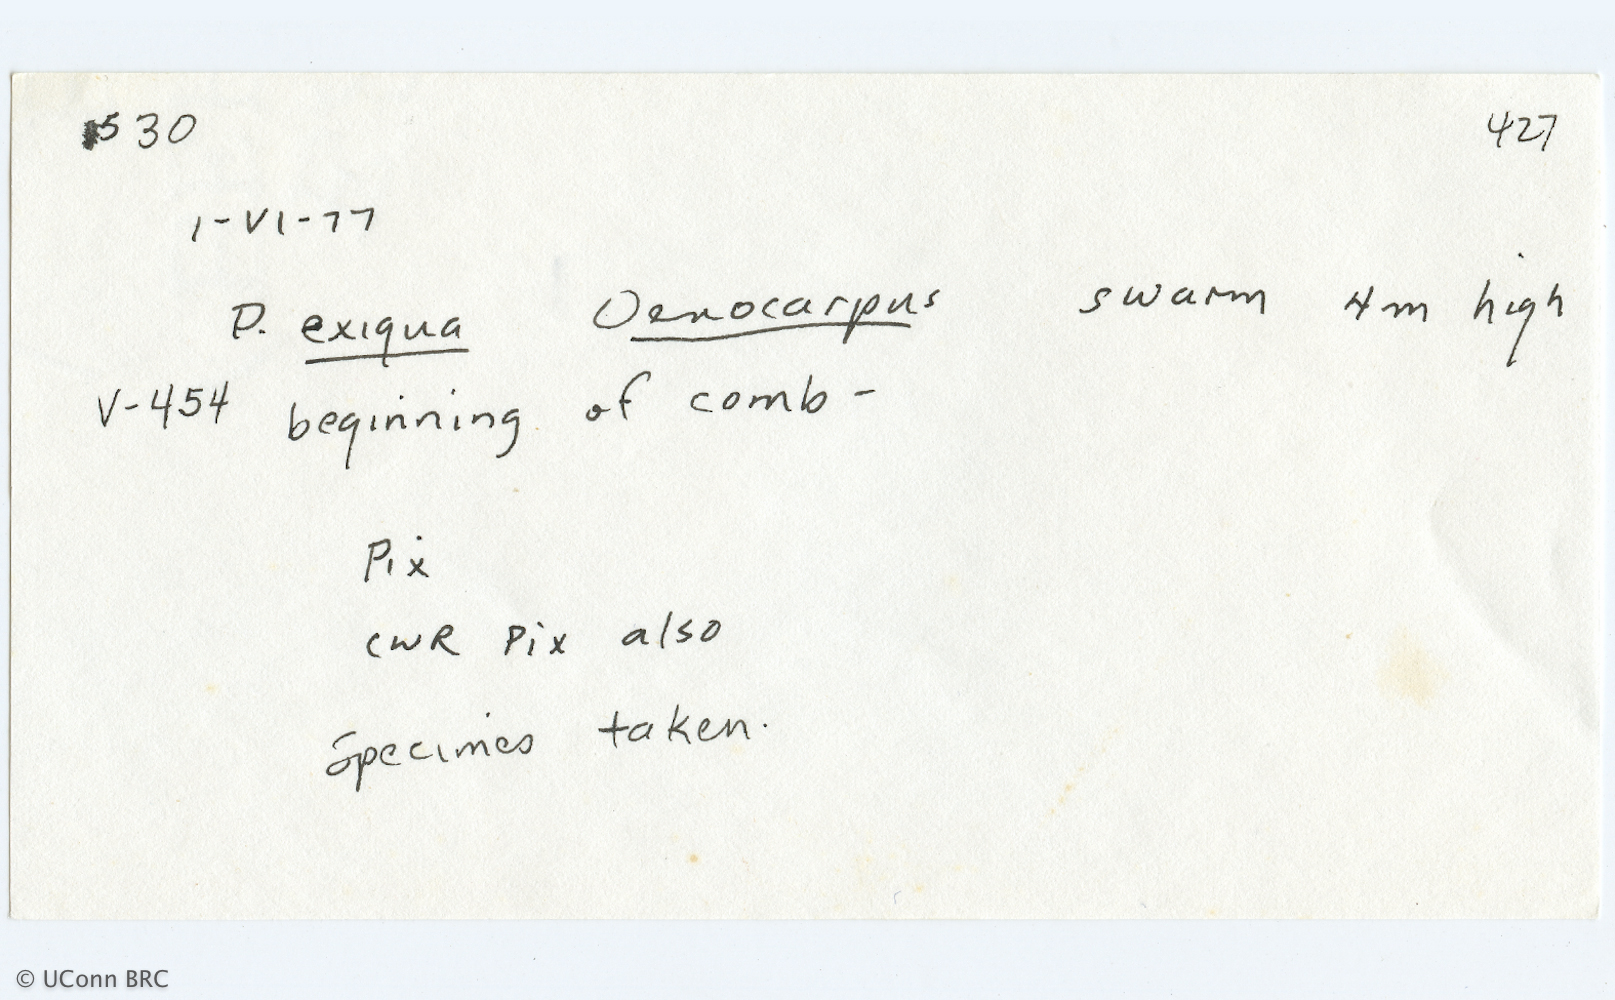 530 427
1-VI-77
P. exiqua Oenocarpus swarm 4m high
V-454 beginning of comb -
Pix
CWR Pix also
Specimes taken.
© UConn BRC